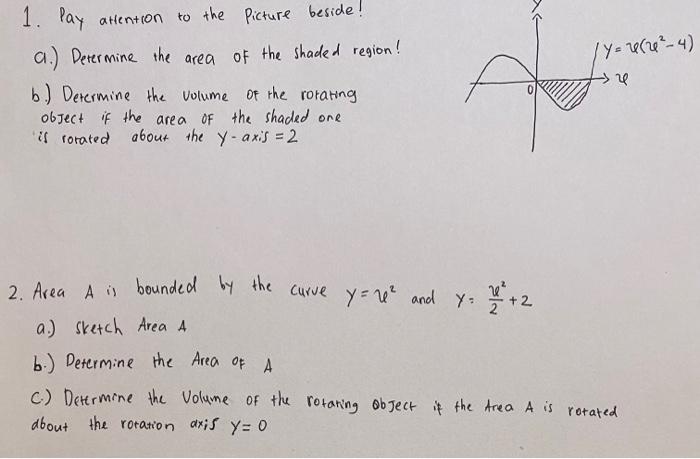 1. Pay attention to the Picture beside!
y
a.) Determine the area of the shaded region!
y = x(x² - 4)
x
0
b.) Determine the volume of the rotating
object if the area of the shaded one
is rotated about the y-axis = 2
2. Area A is bounded by the curve y = x² and y = x²/2 + 2
a.) sketch Area A
b.) Determine the Area of A
C.) Determine the Volume of the rotating object if the Area A is rotated
about the rotation axis y = 0